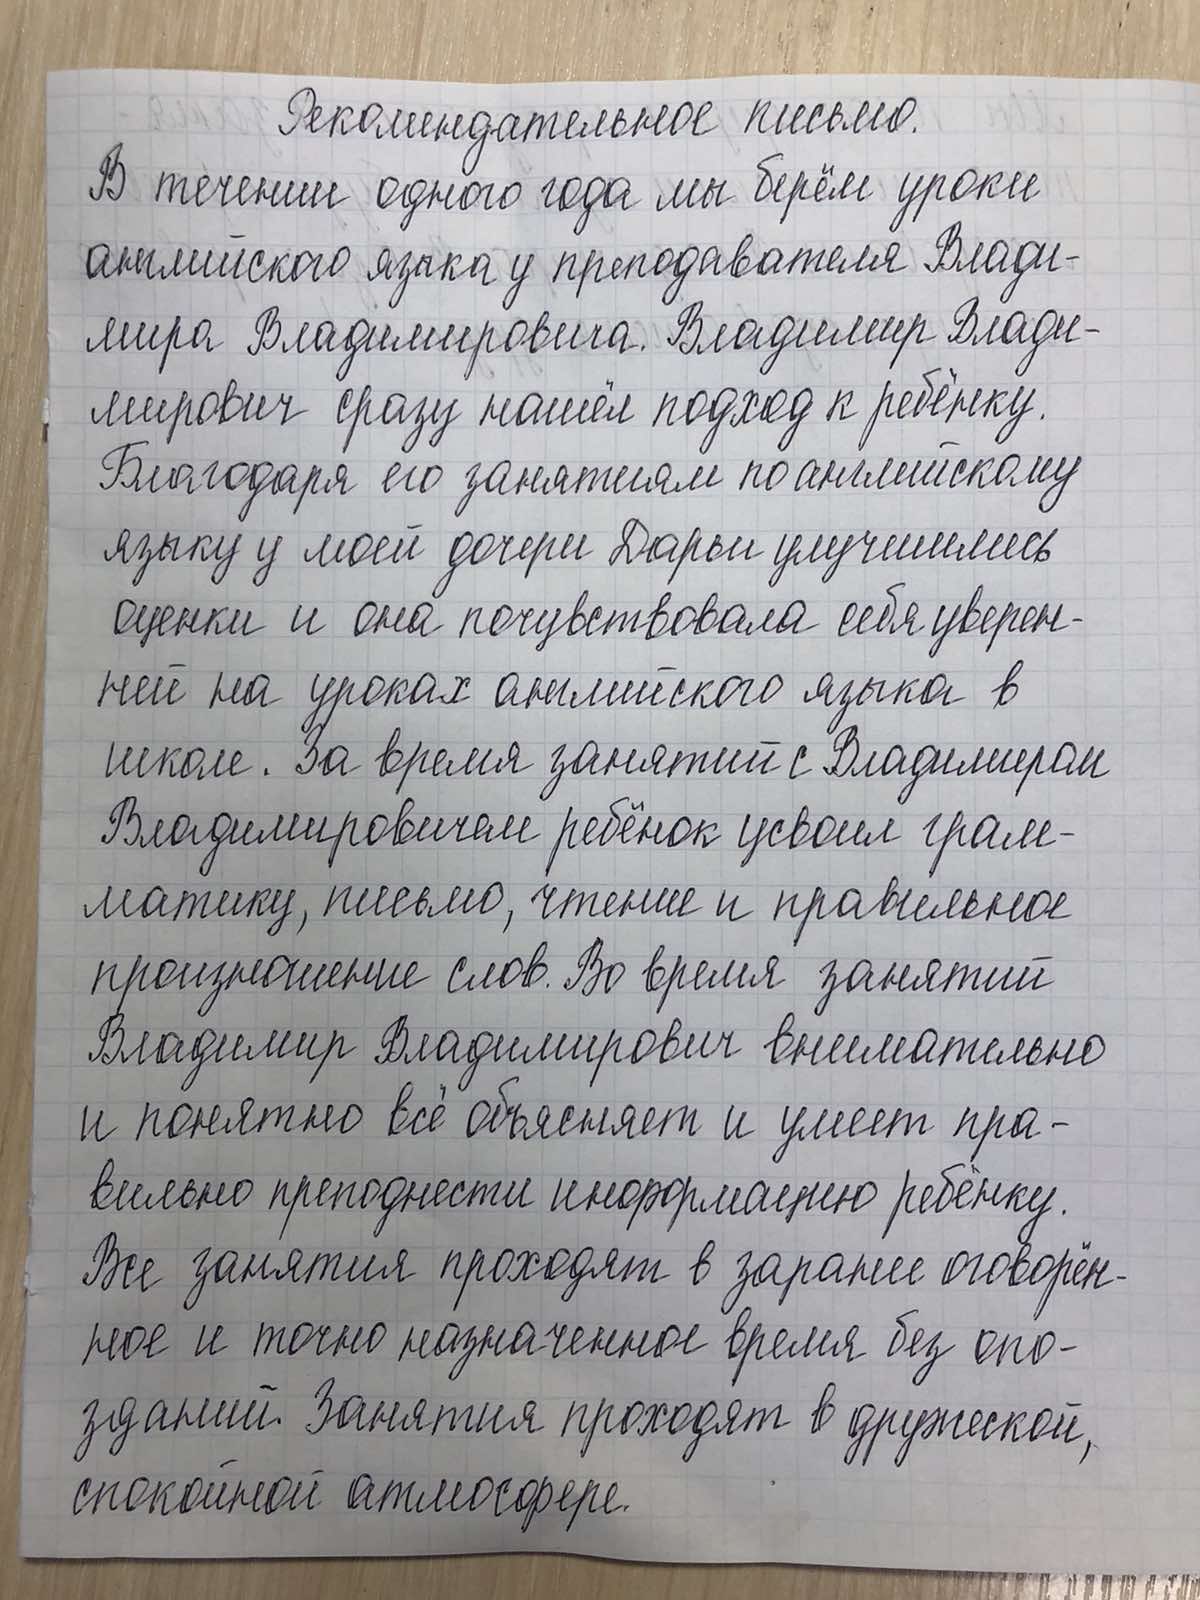 Рекомендательное письмо.
В течении одного года мы берём уроки
английского языка у преподавателя Влади-
мира Владимировича. Владимир Влади-
мирович сразу нашёл подход к ребёнку.
Благодаря его занятиям по английскому
языку у моей дочери Дарьи улучшились
оценки и она почувствовала себя уверен-
ней на уроках английского языка в
школе. За время занятий с Владимиром
Владимировичем ребёнок усвоил грам-
матику, письмо, чтение и правильное
произношение слов. Во время занятий
Владимир Владимирович внимательно
и понятно всё объясняет и умеет пра-
вильно преподнести информацию ребёнку.
Все занятия проходят в заранее оговорён-
ное и точно назначенное время без опо-
зданий. Занятия проходят в дружеской,
спокойной атмосфере.